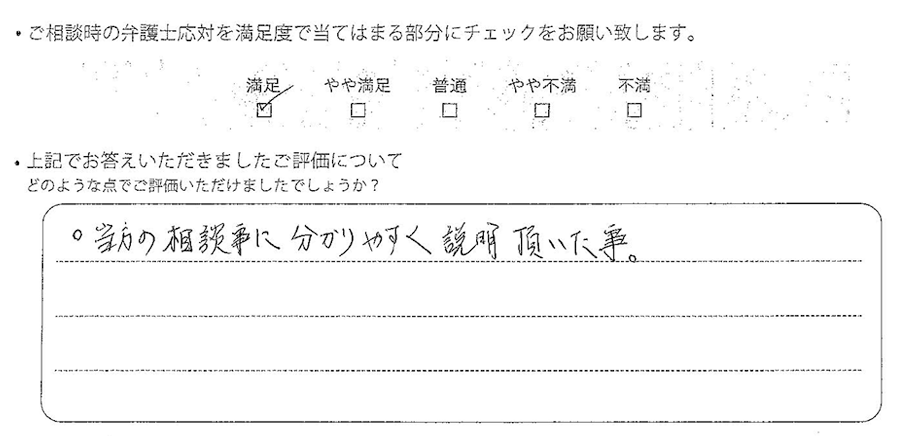 ・ご相談時の弁護士応対を満足度で当てはまる部分にチェックをお願い致します。
満足 やや満足 普通 やや不満 不満
・上記でお答えいただきましたご評価について
どのような点でご評価いただけましたでしょうか？
○当方の相談事に分かりやすく説明頂いた事。